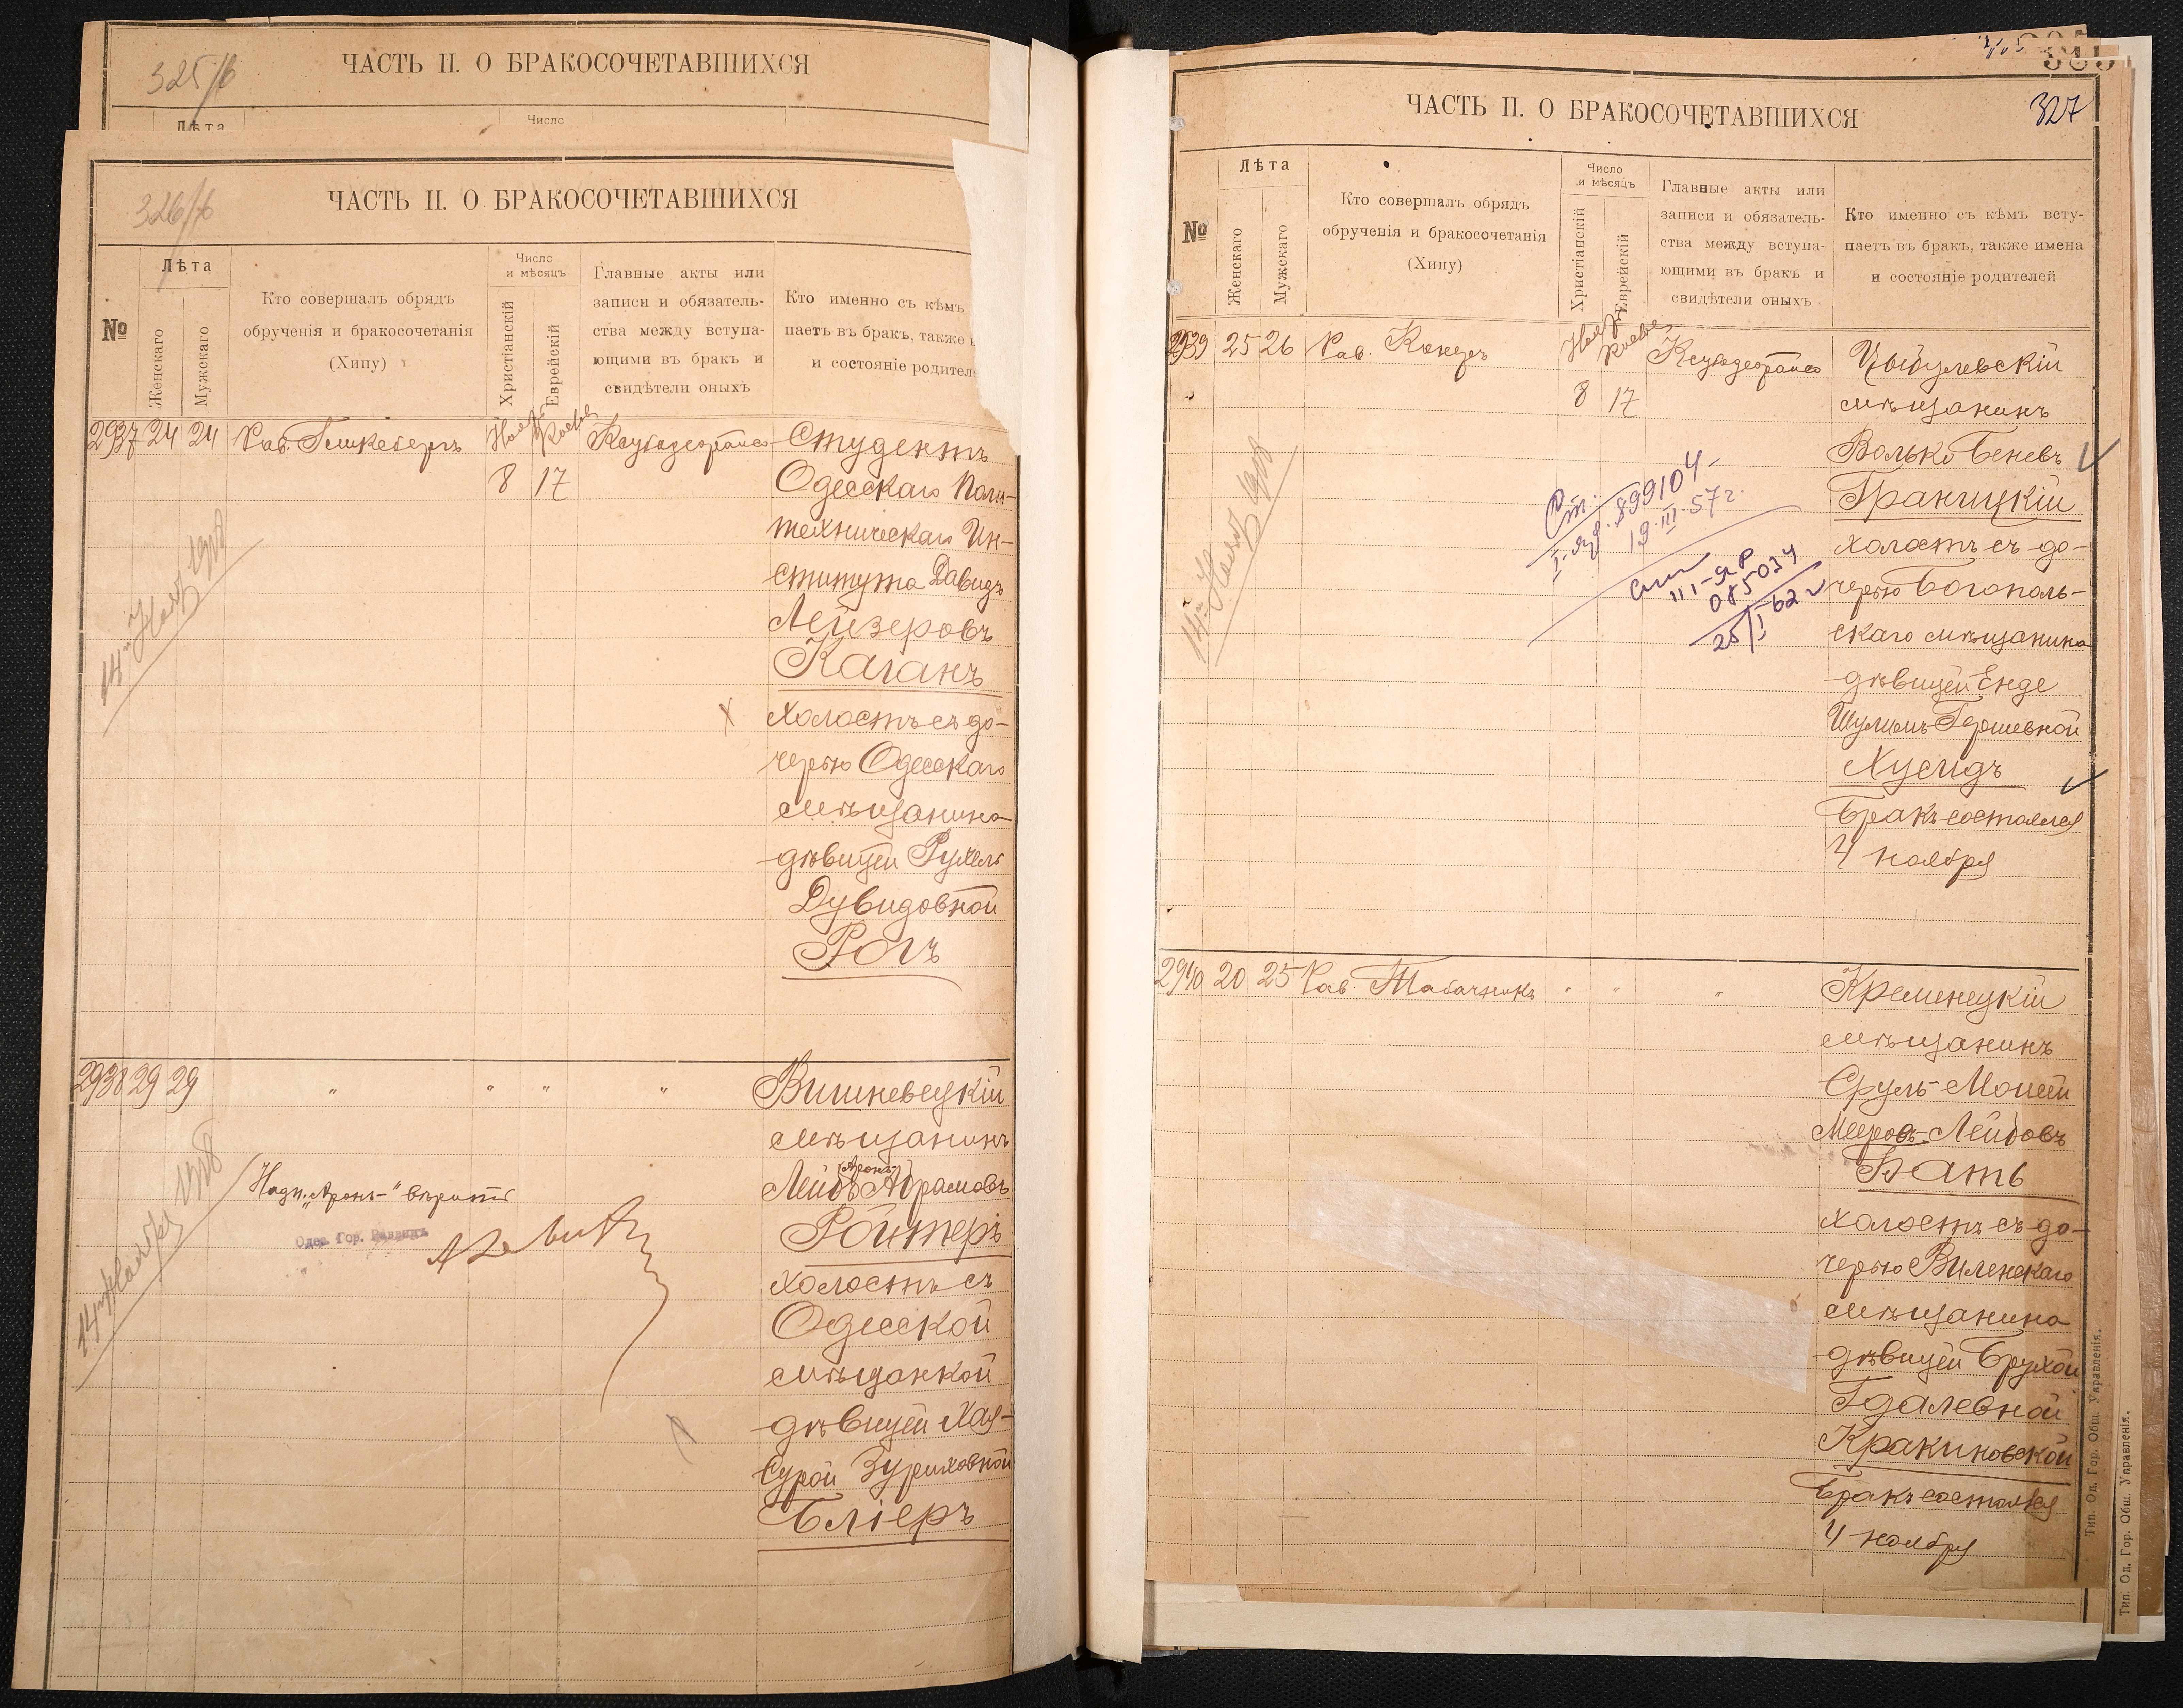 325/6
ЧАСТЬ II. О БРАКОСОЧЕТАВШИХСЯ
Лѣта
Число
326/6
ЧАСТЬ II. О БРАКОСОЧЕТАВШИХСЯ
№
Лѣта
Женскаго
Мужскаго
Кто совершалъ обрядъ
обрученія и бракосочетанія
(Хипу)
Число
и мѣсяцъ
Христіанскій
Еврейскій
Главные акты или
записи и обязатель-
ства между вступа-
ющими въ бракъ и
свидѣтели оныхъ
Кто именно съ кѣмъ
паетъ въ бракъ, также
и состояніе родител
2937 24 24 Рав.
8 17
Студентъ
Одесскаго Поли-
техническаго Ин-
ститута Давидъ
Лейзеровъ
Каганъ
холостъ съ до-
черью Одесскаго
мѣщанина
дѣвицей Рухель
Дувидовной
Рогъ
14 Нояб 1908
2938 29 29 " " " "
Вишневецкій
мѣщанинъ
Аронъ
Лейбъ Абрамовъ
Ройтеръ
холостъ съ
Одесской
мѣщанкой
дѣвицей Хая-
Сурой Зуриховной
Бліеръ
Надп. „Аронъ-" вѣрить
Одес. Гор. Раввинъ
14 Ноября 1908
327
ЧАСТЬ II. О БРАКОСОЧЕТАВШИХСЯ
№
Лѣта
Женскаго
Мужскаго
Кто совершалъ обрядъ
обрученія и бракосочетанія
(Хипу)
Число
и мѣсяцъ
Христіанскій
Еврейскій
Главные акты или
записи и обязатель-
ства между вступа-
ющими въ бракъ и
свидѣтели оныхъ
Кто именно съ кѣмъ всту-
паетъ въ бракъ, также имена
и состояніе родителей
2939 25 26 Рав.
8 17
Цыбулевскій
мѣщанинъ
Волько Беневъ
Границкій
холостъ съ до-
черью Богополь-
скаго мѣщанина
дѣвицей Енде
Шулимъ-Гершевной
Хусидъ
Бракъ состоялся
4 ноября
14 Нояб 1908
899104
19.III.57г.
III-ЯР
085034
25/I-62
2940 20 25 Рав. Табачникъ " " "
Кременецкій
мѣщанинъ
Сруль-Мошей
Мееровъ-Лейбовъ
Батъ
холостъ съ до-
черью Виленскаго
мѣщанина
дѣвицей Брухой
Гдалевной
Кракиновской
Бракъ состоялся
4 ноября
Тип. Од. Гор. Общ. Управленія.
Тип. Од. Гор. Общ. Управленія.